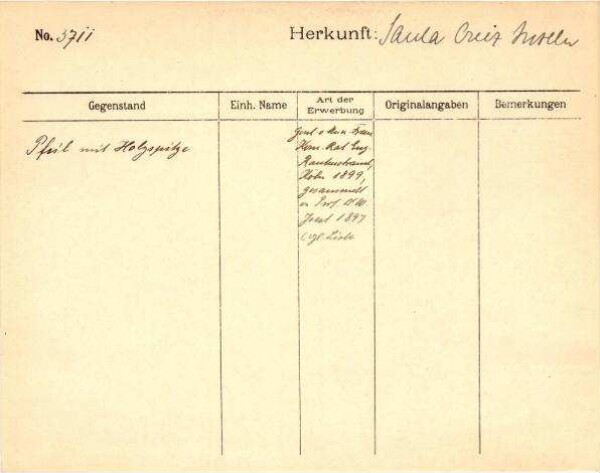 No. 3711
Herkunft: Santa Cruz Inseln
Gegenstand
Einh. Name
Art der
Erwerbung
Originalangaben
Bemerkungen
Pfeil mit Holzspitze
Gesch. v.
Rautenstrauch,
Köln 1899,
gesammelt
v. Prof. Dr. W.
Joest 1897